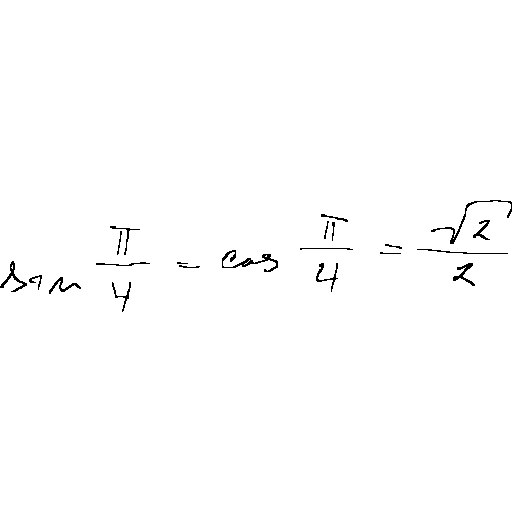 \sin \frac{\pi}{4} = \cos \frac{\pi}{4} = \frac{\sqrt{2}}{2}